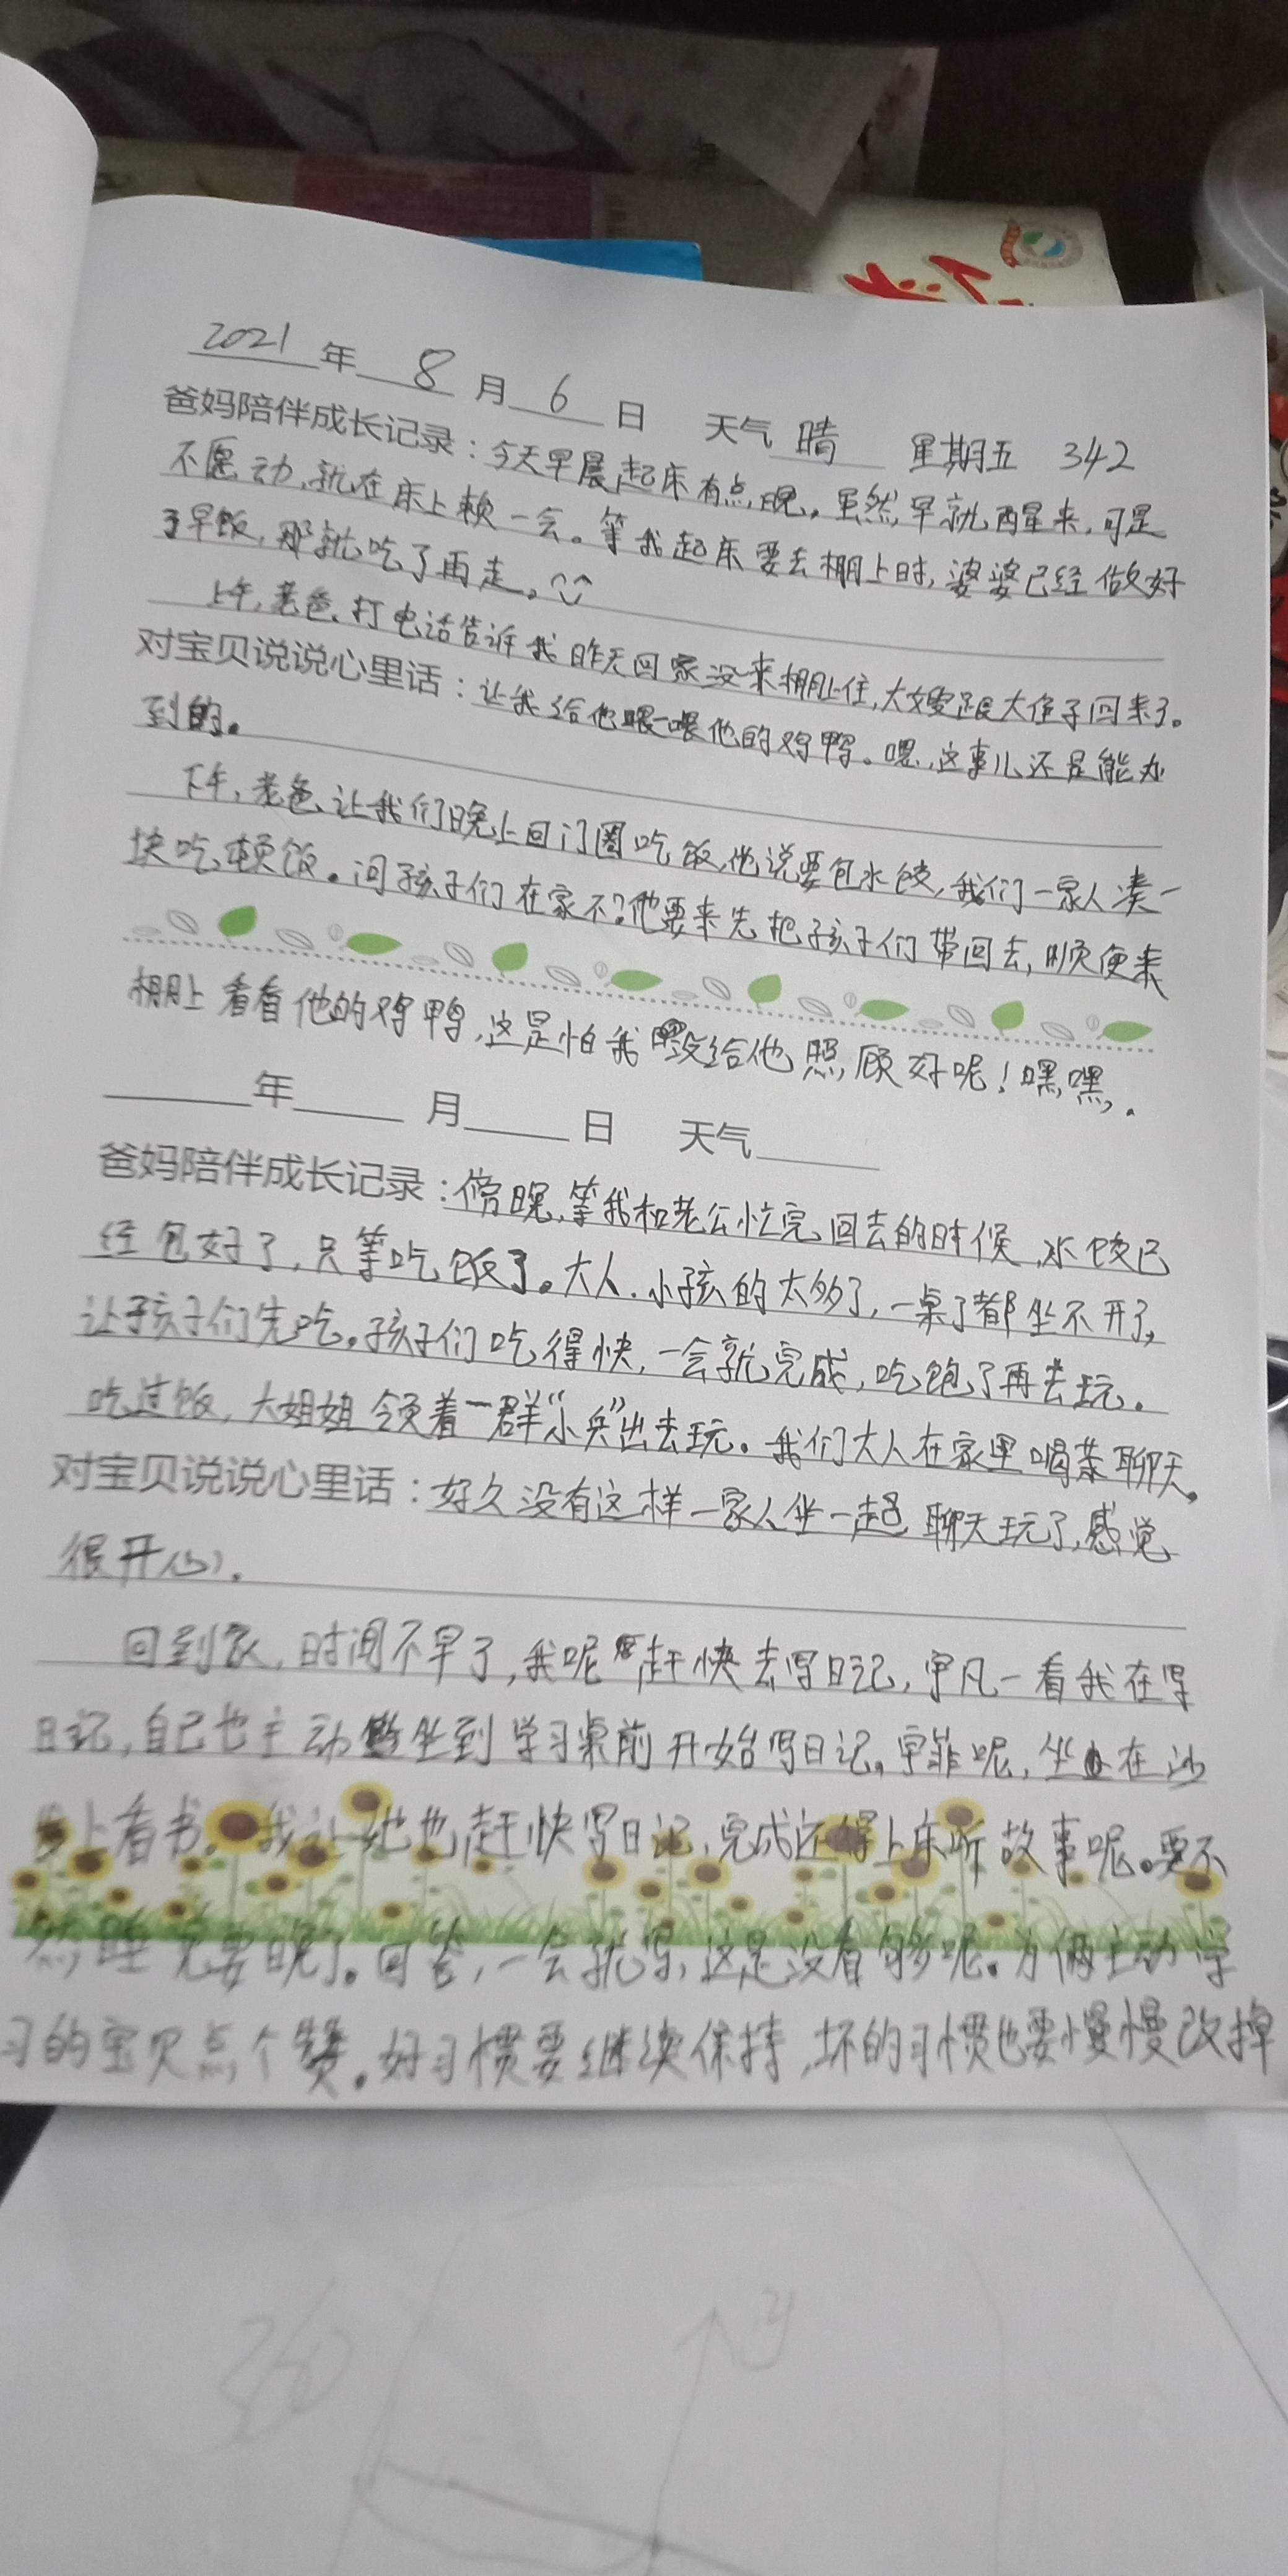 2021年8月6日 天气晴 星期五 342
爸妈陪伴成长记录：今天早晨起床有点晚。虽然早就醒来，可是
不愿动，就在床上赖一会。等我起床要去棚上时，婆婆已经做好
了早饭，那就吃了再走。
上午，老爸打电话告诉我昨天回家没来棚上住，大嫂跟大侄子回来了。
对宝贝说说心里话：让我给他喂一喂他的鸡鸭。嗯，这事儿还是能办
到的。
下午，老爸让我们晚上回门圈吃饭，他说要包水饺，我们一家人凑一
块吃顿饭。问孩子们在家不？他要来先把孩子们带回去，顺便来
棚上看看他的鸡鸭，这是怕我没给他照顾好呢！嘿嘿，.
年 月 日 天气
爸妈陪伴成长记录：傍晚，等我和老公忙完回去的时候，水饺已
经包好了，只等吃饭了。大人、小孩的太多了，一桌子都坐不开了，
让孩子们先吃。孩子们吃得快，一会就完成，吃饱了再去玩。
吃过饭，大姐姐领着一群“小兵”出去玩。我们大人在家里喝茶聊天。
对宝贝说说心里话：好久没有这样一家人坐一起聊天玩了，感觉
很开心）.
回到家，时间不早了，我呢赶快去写日记，宇凡一看我在写
日记，自己也主动坐到学习桌前开始写日记。宇菲呢，坐在沙
发上看书。我让她也赶快写日记，完成还得上床听故事呢。要不
然睡觉要晚了。回答，一会就写，这是没看够呢。为俩主动学
习的宝贝点个赞。好习惯要继续保持，坏的习惯也要慢慢改掉